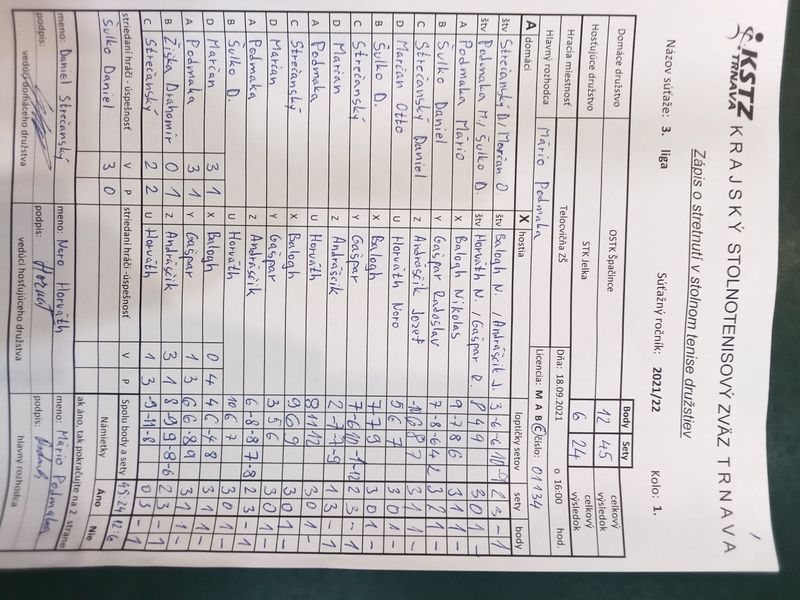 KSTZ
TRNAVA
KRAJSKÝ STOLNOTENISOVÝ ZVÄZ TRNAVA
Zápis o stretnutí v stolnom tenise družstiev
Názov súťaže: 3. liga Súťažný ročník: 2021/22 Kolo: 1.
Body Sety
Domáce družstvo OŠTK Špačince 12 45 celkový výsledok
Hosťujúce družstvo STK Jelka 6 24 celkový výsledok
Hracia miestnosť Telocvičňa ZŠ Dňa: 18.09.2021 o 16:00 hod.
Hlavný rozhodca Mário Podmaka Licencia: M A B C číslo: 01134
A domáci X hostia loptičky setov sety body
štv Strečanský D./Marčan O štv Balogh N. /Andráščik J. 3 -6 -6 10 -9 2 3 - 1
štv Podmaka M./Šulko D. štv Horváth N. /Gašpar R. 8 4 9 3 0 1 -
A Podmaka Mário X Balogh Nikolas 9 -7 8 6 3 1 1 -
B Šulko Daniel Y Gašpar Radoslav 7 -8 -6 4 2 3 2 1 -
C Strečanský Daniel Z Andráščik Jozef 3 1 1 -
D Marčan Otto U Horváth Noro 5 6 7 3 0 1 -
B Šulko D. X Balogh 7 7 9 3 0 1 -
C Strečanský Y Gašpar 2 3 - 1
D Marčan Z Andráščik 2 -7 -7 -9 1 3 - 1
A Podmaka U Horváth 8 11 12 3 0 1 -
C Strečanský X Balogh 9 6 9 3 0 1 -
D Marčan Y Gašpar 3 5 6 3 0 1 -
A Podmaka Z Andráščik 6 -8 -8 7 -8 2 3 - 1
B Šulko D. U Horváth 10 6 7 3 0 1 -
D Marčan 3 1 X Balogh 0 4 4 6 -4 8 3 1 1 -
A Podmaka 3 1 Y Gašpar 1 3 6 6 -8 9 3 1 1 -
B Žiška Drahomír 0 1 Z Andráščik 3 1 8 -9 9 -8 -6 2 3 - 1
C Strečanský 2 2 U Horváth 1 3 -9 -11 -8 0 3 - 1
striedaní hráči - úspešnosť V P striedaní hráči -úspešnosť V P Spolu body a sety 45:24 12:6
Šulko Daniel 3 0 Námietky Áno Nie
ak áno, tak pokračujte na 2 strane
meno: Daniel Strečanský meno: Noro Horváth meno: Mário Podmaka
podpis: podpis: podpis:
vedúci domáceho družstva vedúci hosťujúceho družstva hlavný rozhodca